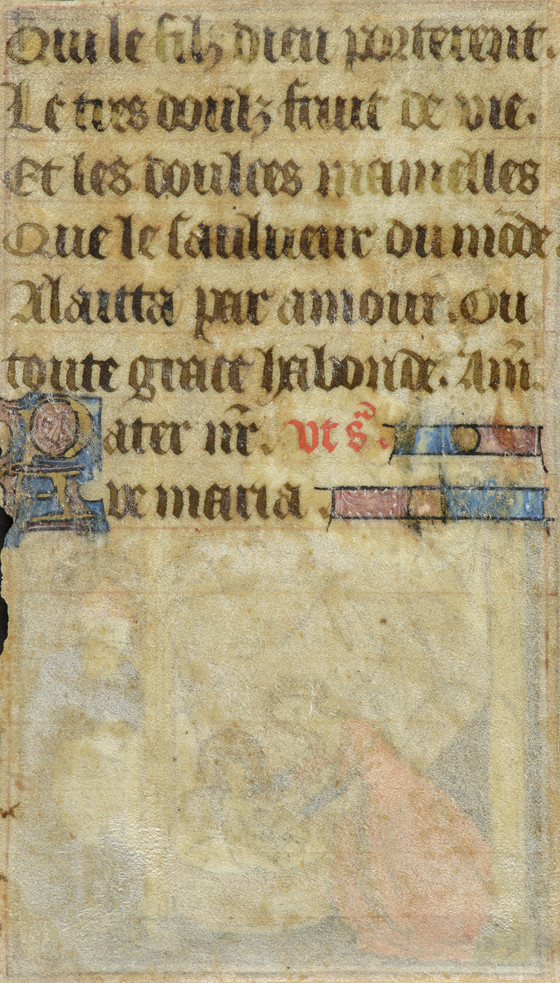 Qui le filz dieu porterent.
Le tres doulz fruit de vie.
Et les doulces mamelles
Que le saulueur du mõde
Alaitta par amour. Ou
toute grace habonde. Am̃.
Pater nr̃. vt sᷣ.
Aue maria.